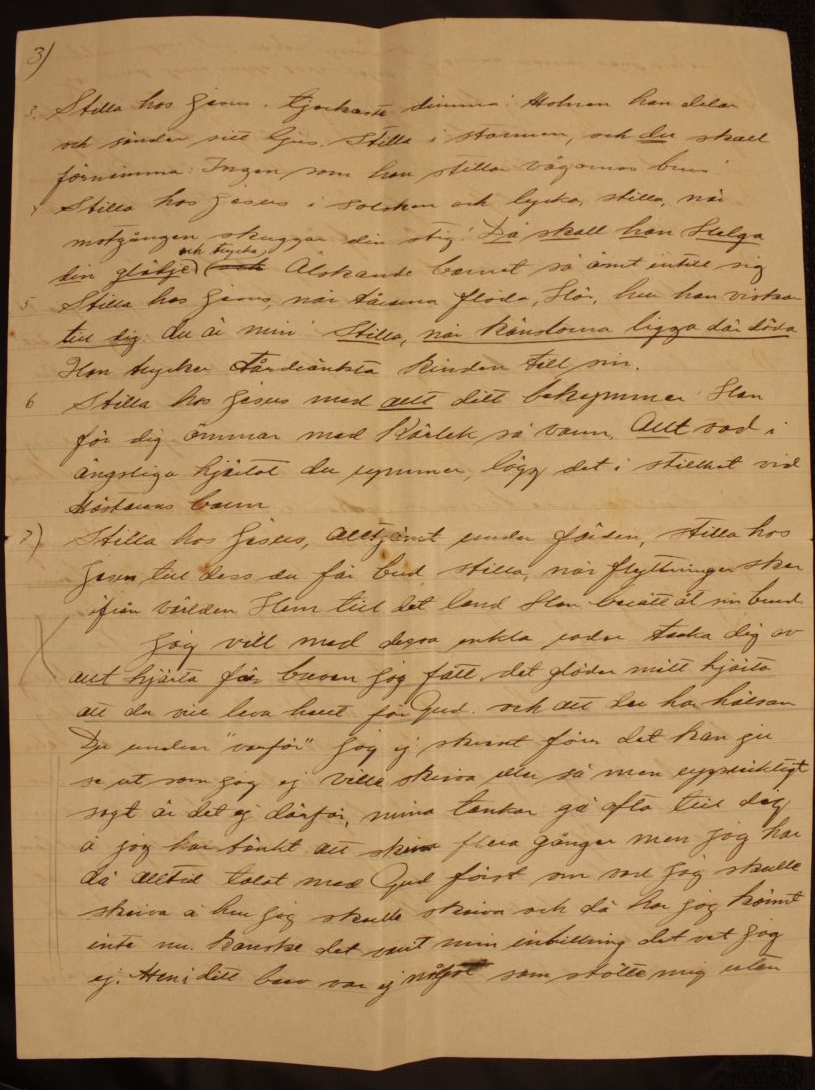 3)
3. Stilla hos Jesus. tjockaste dimma! Molnen han delar
och sänder sitt ljus. Stilla i stormen, och du skall
förnimma: Ingen som han stillar vågornas brus!
4 Stilla hos Jesus i solsken och lycka, stilla, när
motgången skuggar din stig! Då skall han Helga
din glädje och trycka Älskande barnet så ömt intill sig
5 Stilla hos Jesus, när tårarna flöda, Hör, hur han viskar
till dig: du är min! Stilla, när känslorna ligga där döda
Han trycker tårdränkta kinden till sin.
6 Stilla hos Jesus med allt ditt bekymmer! Han
för dig ömmar med Kärlek så varm, Allt vad i
ängsliga hjärtat du rymmer, lägg det i stillhet vid
Mästarens barm
7) Stilla hos Jesus, alltjämt under färden, stilla hos
Jesus, till dess du får bud, stilla, när flyttningen sker
ifrån världen Hem till det land Han berätt åt sin brud
Jag vill med dessa enkla rader tacka dig av
allt hjärta för breven jag fått, det gläder mitt hjärta
att du vill leva helt för Gud. och att du har hälsan
Du undrar "varför" jag ej skrivit förr det kan ju
se ut som jag ej ville skriva eller så men uppriktigt
sagt är det ej därför, mina tankar gå ofta till dig
å jag har tänkt att skriva flera gånger men jag har
då alltid talat med Gud först om vad jag skulle
skriva å hur jag skulle skriva och då har jag känt
inte nu. kanske det var min inbillning det vet jag
ej. Men i ditt brev var ej något som stötte mig utan